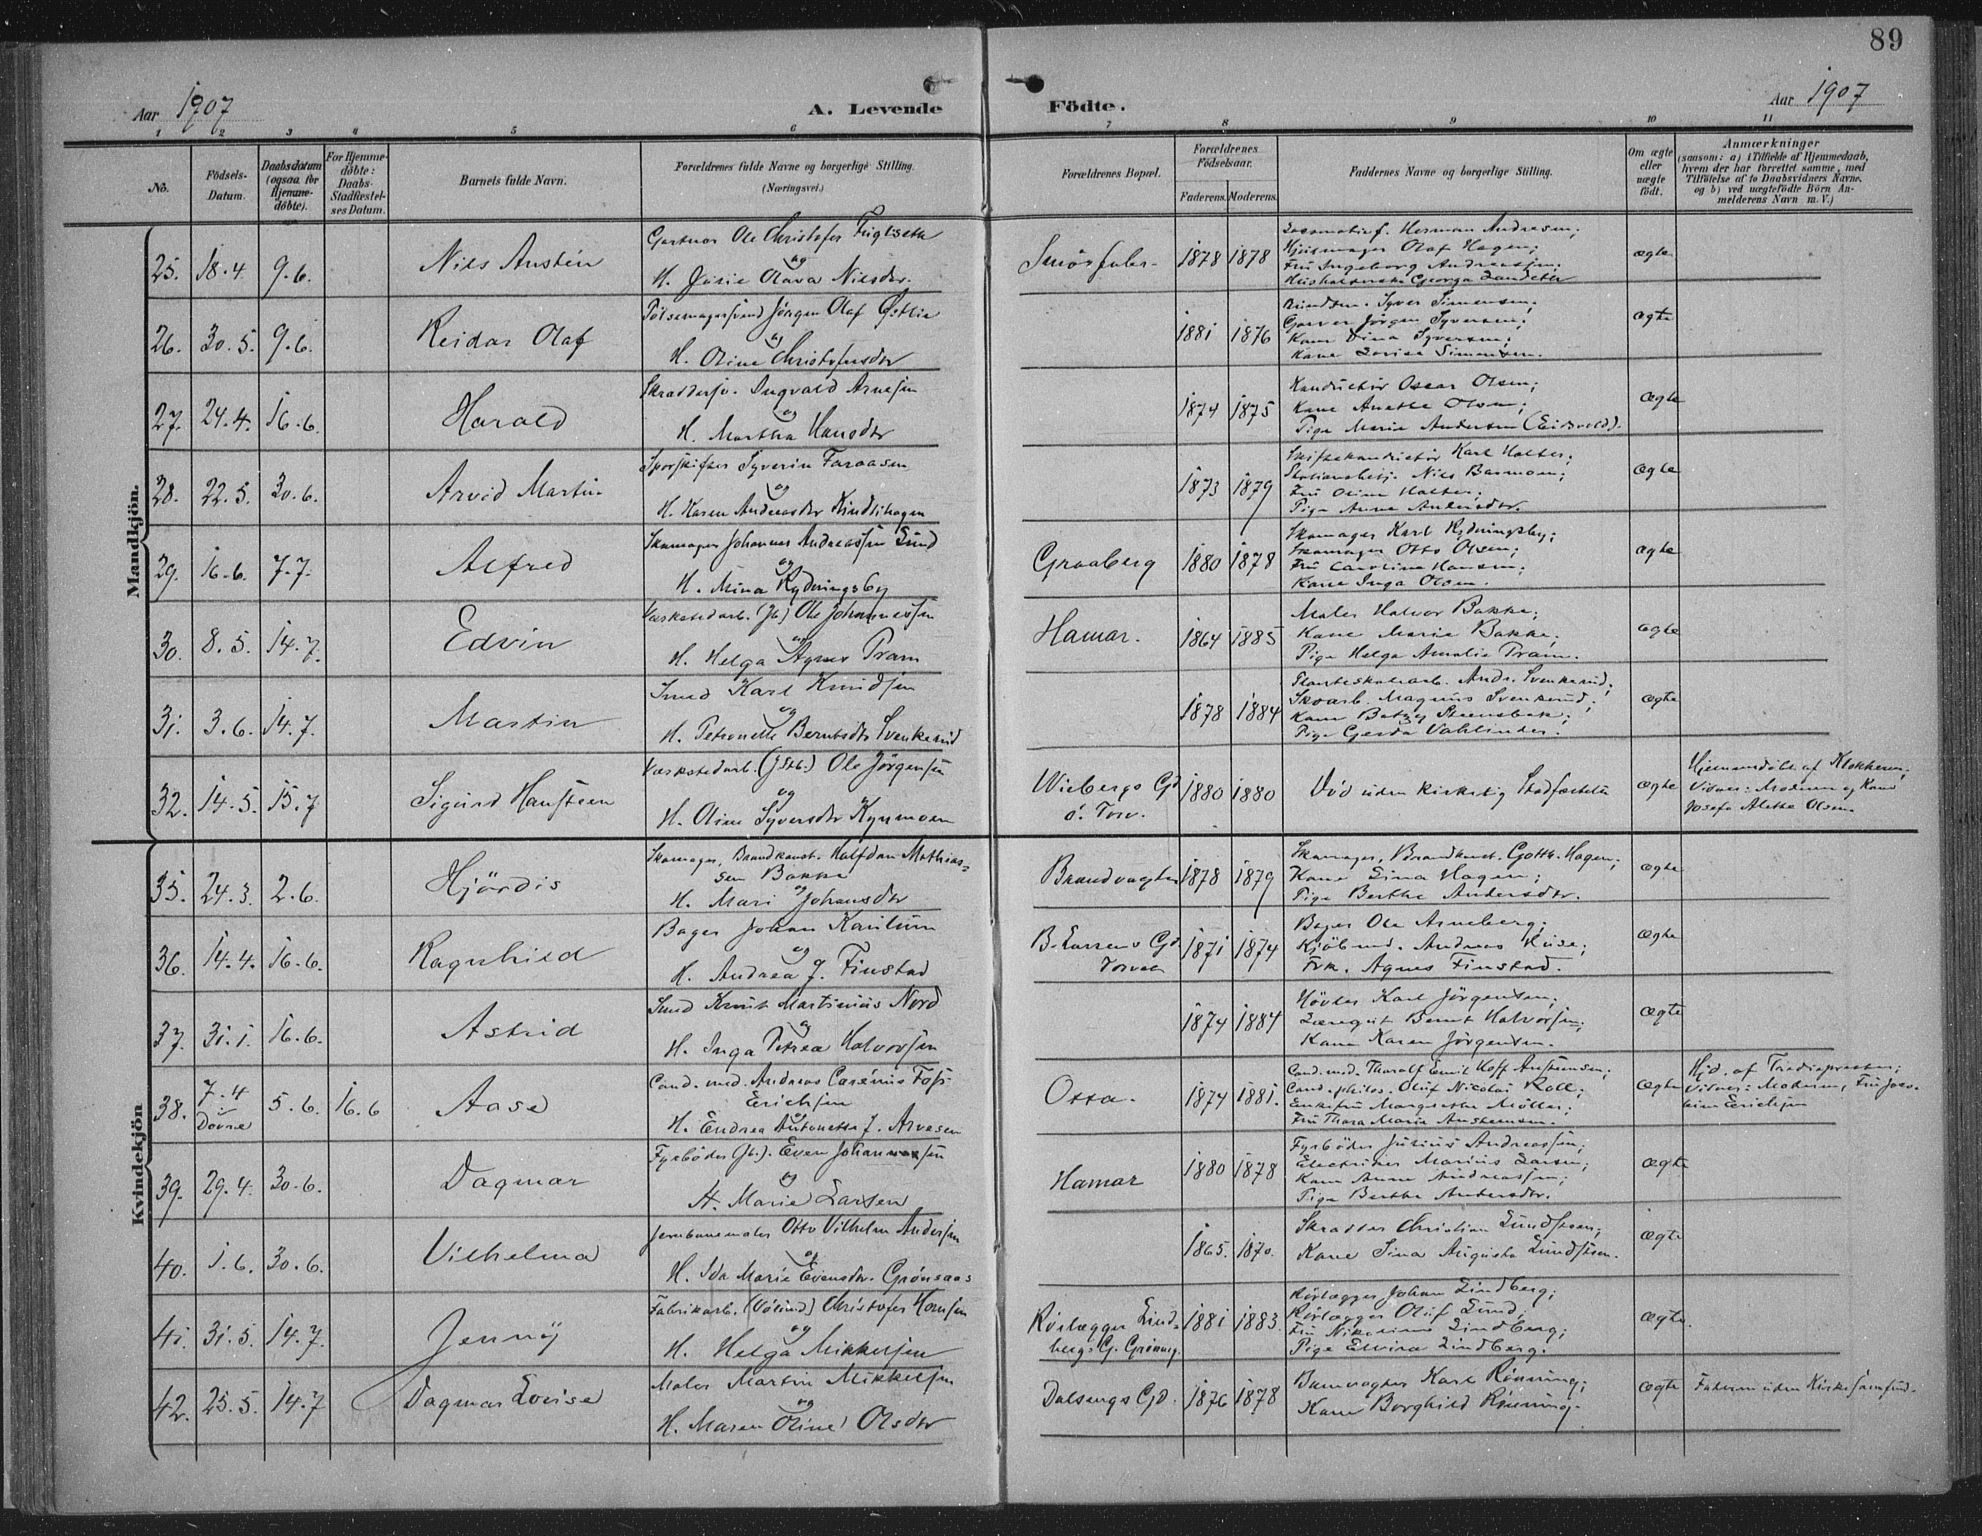 89
Aar 1907
A. Levende
Födte.
Aar 1907
1 2 3 4 5 6 7 8 9 10 11
No.
Födsels-Datum.
Daabsdatum (ogsaa for Hjemme-döbte).
For Hjemme-döbte: Daabs-Stadfæstel-ses Datum.
Barnets fulde Navn.
Forældrenes fulde Navne og borgerlige Stilling. (Næringsvei.)
Forældrenes Bopæl.
Forældrenes Födselsaar.
Faderens. Moderens.
Faddernes Navne og borgerlige Stilling.
Om ægte eller uægte födt.
Anmærkninger
(saasom: a) i Tilfælde af Hjemmedaab, hvem der har forrettet samme, med Tilföielse af to Daabsvidners Navne, og b) ved uægtefödte Börn An-melderens Navn m. V.)
Mandkjön.
25. 18.4. 9.6. Nils Austin
Gartner Ole Christofer
og
H. Julie Olava Nilsdr.
1878 1878
Hjulmager Olaf Hagen;
Fru Ingeborg Andreassen;
ægte
26. 30.5. 9.6. Reidar Olaf
Pölsemagersvend Jörgen Olaf Østlie
og
H. Oline Christofersdr
1881 1876
Syver Simensen;
Garver Jörgen Syversen;
Kone Lina Syversen;
Kone Lovise Simensen.
ægte
27. 24.4. 16.6. Harald
Skreddersv. Ingvald Arnesen
og
H. Martha Hansdr
1874 1875
Konduktör Oscar Olsen;
Kone Anethe Olsen;
Pige Marie Andersen (Eidsvold).
ægte
28. 22.5. 30.6. Arvid Martin
Sporskifter Syverin Faraasen
og
H. Karen Andreasdr Kindlihagen
1873 1879
Skiftekonduktör Karl Holter;
Stationsbetj. Nils
Fru Oline Holter;
Pige Anne Andersdr.
ægte
29. 16.6. 7.7. Alfred
Skomager Johannes Andreassen Lund
og
H. Mina Rydningsby
Graaberg
1880 1878
Skomager Karl Rydningsby;
Skomager Otto Olsen;
Fru Caroline Hansen;
Kone Inga Olsen.
ægte
30. 8.5. 14.7. Edvin
Værkstedarb. (Jb.) Ole Johannessen
og
H. Helga Agnes Pram
Hamar.
1864 1885
Maler Halvor Bakke;
Kone Marie Bakke;
Pige Helga Amalie Pram.
ægte
31. 3.6. 14.7. Martin
Smed Karl Knudsen
og
H. Petronelle Berntsdr Svenkerud
1878 1884
Andr. Svenkerud;
Skoarb. Magnus Svenkerud;
Kone Betzy Steensbak;
Pige Gerda Vahlinder.
ægte
32. 14.5. 15.7 Sigurd Hansteen
Værkstedarb. (Jstb.) Ole Jörgensen
og
H. Oline Syversdr Kynmoen
Wiebergs Gd
ö. Torv.
1880 1880
Död uden kirkelig Stadfæstelse
ægte
Hjemmedöbt af Klokkeren;
Vidner: Moderen og Kone
Josefa Alethe Olsen.
Kvindekjön
35. 24.3. 2.6. Hjördis
Skomager, Brandkonst. Halfdan Mathias-
sen Bakke
og
H. Mari Johansdr
Brandvagten
1878 1879
Skomager, Brandkonst. Gotth. Hagen;
Kone Lina Hagen;
Pige Berthe Andersdr.
ægte
36. 14.4. 16.6. Ragnhild
Bager Johan Kaulum
og
H. Andrea J. Finstad
B. Larsens Gd.
Torvet
1871 1874
Bager Ole Arneberg;
Kjöbmd. Andreas Kise;
Frk. Agnes Finstad.
ægte
37. 31.1. 16.6. Astrid
Smed Knut Martinius Nord
og
H. Inga Petrea Halvorsen
1874 1884
Hövler Karl Jörgensen;
Bernt Halvorsen;
Kone Karen Jörgensen.
ægte
38. 7.4
i
Dovre
5.6. 16.6 Aase
Cand. med. Andreas Carenius Foss-
Erichsen
og
H. Endrea Antonette J. Arvesen
Otta.
1874 1881.
Cand. med. Tharalf Emil Hoff Austeensen;
Cand. philos. Oluf Nicolai Roll;
Enkefru Margrethe Möller;
Fru Thora Marie Austeensen.
ægte
Hjd. af Stedets præsten;
Vidner: Moderen, Fru
Erichsen
39. 29.4. 30.6. Dagmar
Fyrböder (Jb.). Even Johannessen
og
H. Marie Larsen
Hamar
1880 1878
Fyrböder Julius Andreassen;
Electriker Marius Larsen;
Kone Anna Andreassen;
Pige Berthe Andersdr.
ægte
40. 1.6. 30.6. Vilhelma
Jernbanemaler Otto Vilhelm Andersen
og
H. Ida Marie Evensdr. Grönsaas
1865. 1870.
Skrædder Christian Lundsteen;
Kone Lina Augusta Lundsteen.
ægte
41. 31.5. 14.7. Jenny
Fabrikarb. Christofer Hansen
og
H. Helga Mikkelsen
Rörlægger Lind-
bergs G. Grönneg.
1881 1883
Rörlægger Johan Lindberg;
Rörlægger Oluf Lund;
Fru Nikoline Lindberg;
Pige Elvira Lindberg.
ægte.
42. 25.5. 14.7 Dagmar Lovise
Maler Martin Mikkelsen
og
H. Maren Oline Olsdr
Dalsengs Gd.
1876 1878
Banevogter Karl Rönning;
Kone Borghild Rönning.
ægte
Faderen uden Kirkesamfund.